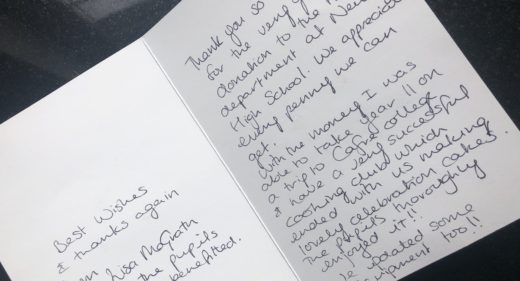 Thank you so
for the very
donation to the
department at
High School. We appreciate
every penny we can
get.
With the money I was
able to take year 11 on
a trip to Cafre college
& have a very successful
cooking club which
ended with us making
lovely celebration cakes.
The pupils thoroughly
enjoyed it!!
updated some
too!!
Best Wishes
& thanks again
Lisa McGrath
the pupils
benefitted.